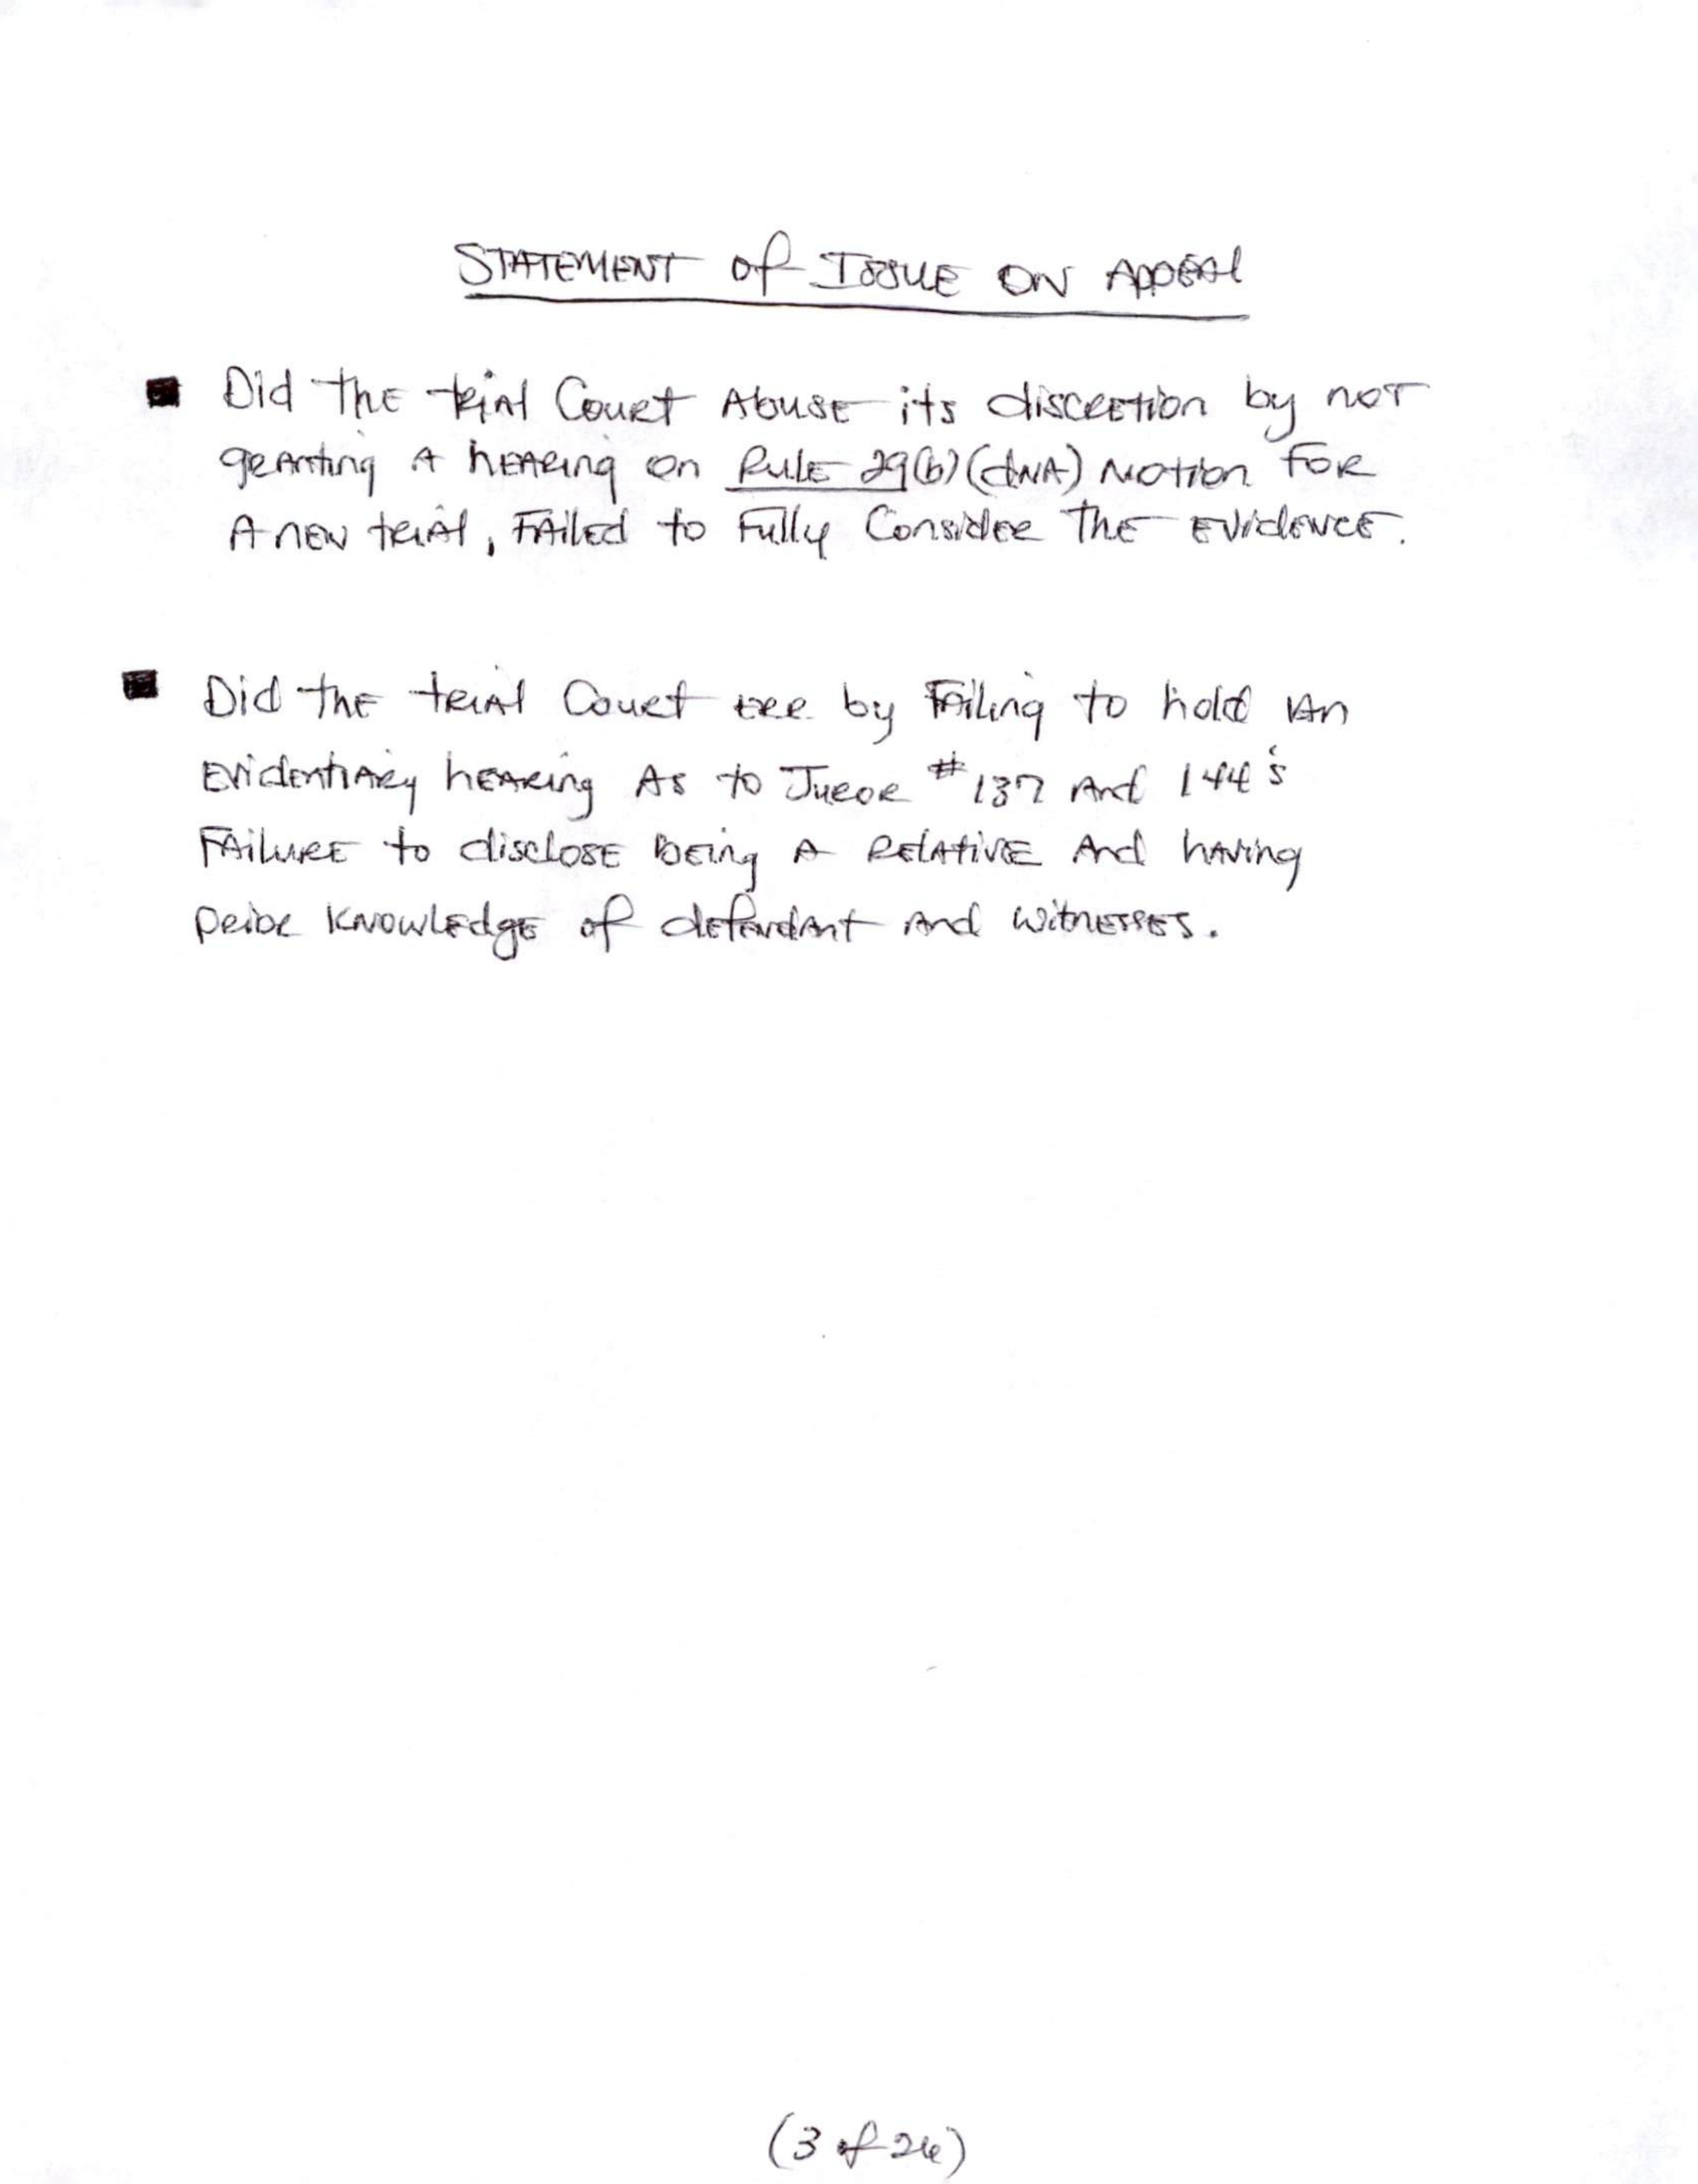 STATEMENT of ISSUE ON APPEAl
■ Did the trial Court Abuse its discretion by not
granting A hEARing on RulE 29(b)(dNA) Motion FOR
A nEW trial, FAilEd to Fully Consider The EvidENCE.
■ Did the trial Court err by FAiling to hold An
EvidentiARy hEARing As to Juror #137 And 144's
FAiluRE to disclosE bEing A RElAtivE And hAving
prior KNowlEdgE of dEfendAnt And witnEssEs.
(3 of 26)